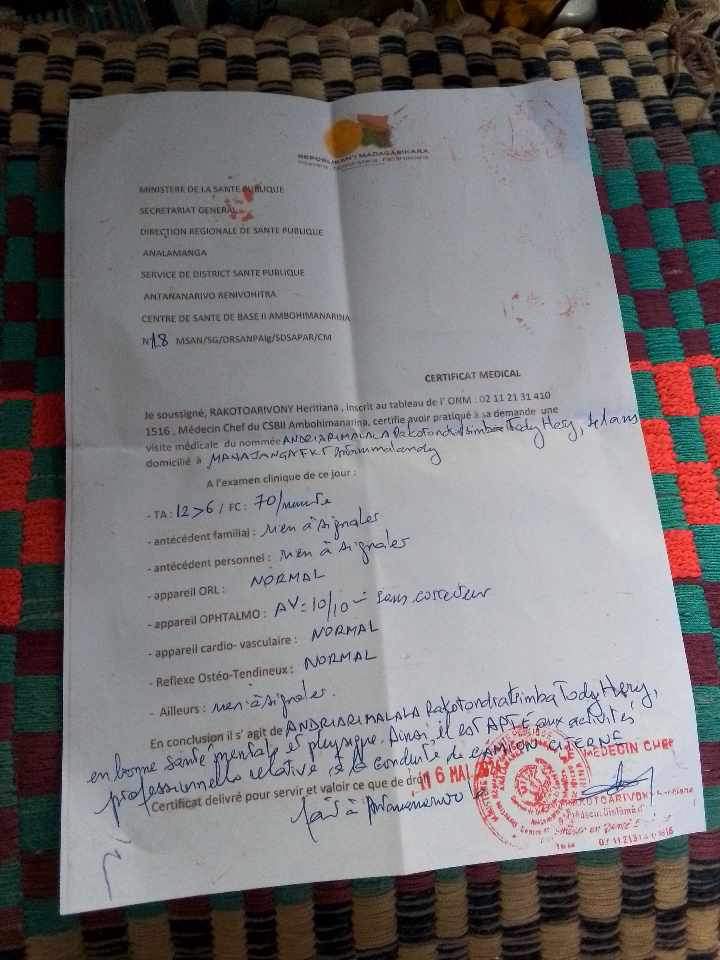 REPOBLIKAN'I MADAGASIKARA
Fitiavana - Tanindrazana - Fandrosoana
MINISTERE DE LA SANTE PUBLIQUE
SECRETARIAT GENERAL
DIRECTION REGIONALE DE SANTE PUBLIQUE
ANALAMANGA
SERVICE DE DISTRICT SANTE PUBLIQUE
ANTANANARIVO RENIVOHITRA
CENTRE DE SANTE DE BASE II AMBOHIMANARINA
N°18 MSAN/SG/DRSANPAlg/SDSAPAR/CM
CERTIFICAT MEDICAL
Je soussigné, RAKOTOARIVONY Heritiana , inscrit au tableau de l' ONM : 02 11 21 31 410
1516 , Médecin Chef du CSBII Ambohimanarina, certifie avoir pratiqué à sa demande une
visite médicale du nommée ANDRIARIMALALA Rakotondratsimba Tody Hery, ans
domicilié à MAHAJANGA FKT
A l'examen clinique de ce jour :
- TA : 12>6 / FC : 70/minute
- antécédent familial : rien à signaler
- antécédent personnel : rien à signaler
- appareil ORL : NORMAL
- appareil OPHTALMO : AV = 10/10 - sans correcteur
- appareil cardio- vasculaire : NORMAL
- Reflexe Ostéo-Tendineux : NORMAL
- Ailleurs : rien à signaler.
En conclusion il s' agit de ANDRIARIMALALA Rakotondratsimba Tody Hery,
en bonne santé mentale et physique. Ainsi il est APTE aux activités
professionnelle relative à la conduite de CAMION CITERNE
Certificat delivré pour servir et valoir ce que de droit
Fait à Antananarivo 16 MAI
MEDECIN CHEF
RAKOTOARIVONY Heritiana